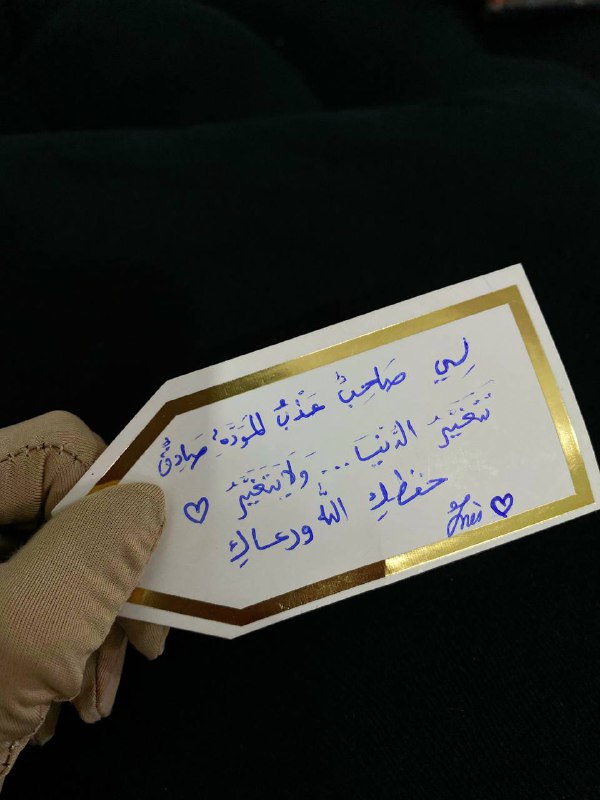 لِي صَاحِبٌ عَذْبُ المَوَدَّةِ صَادِقٌ
تَتَغَيَّرُ الدُّنْيَا... وَلَا يَتَغَيَّرُ ♡
حفظكِ اللّٰه ورعاكِ
Ines ♡